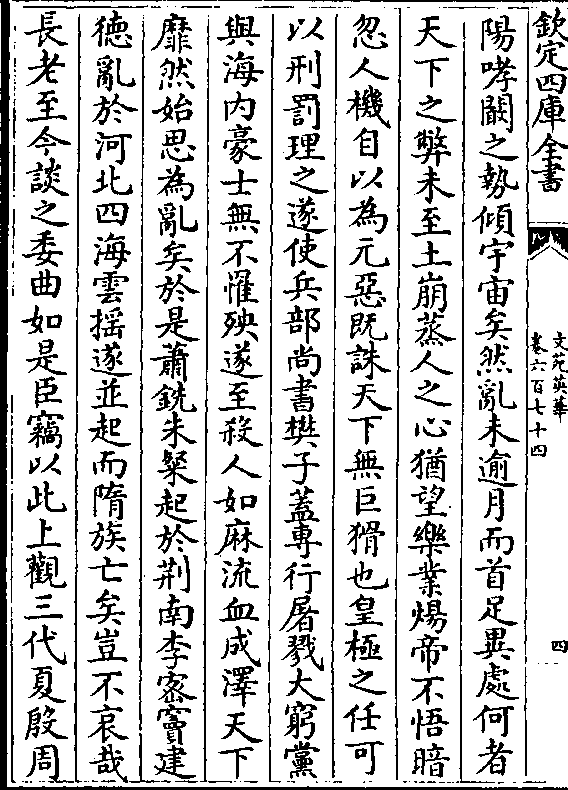 欽定四庫全書
文苑英華
卷六百七十四
四
陽哮闞之勢傾宇宙矣然亂未逾月而首足異處何者
天下之弊未至土崩蒸人之心猶望樂業煬帝不悟暗
忽人機自以為元惡既誅天下無巨猾也皇極之任可
以刑罰理之遂使兵部尚書樊子蓋專行屠戮大窮黨
與海内豪士無不罹殃遂至殺人如麻流血成澤天下
靡然始思為亂矣於是蕭銑朱粲起於荆南李宻竇建
徳亂於河北四海雲揺遂並起而隋族亡矣豈不哀哉
長老至今談之委曲如是臣竊以此上觀三代夏殷周